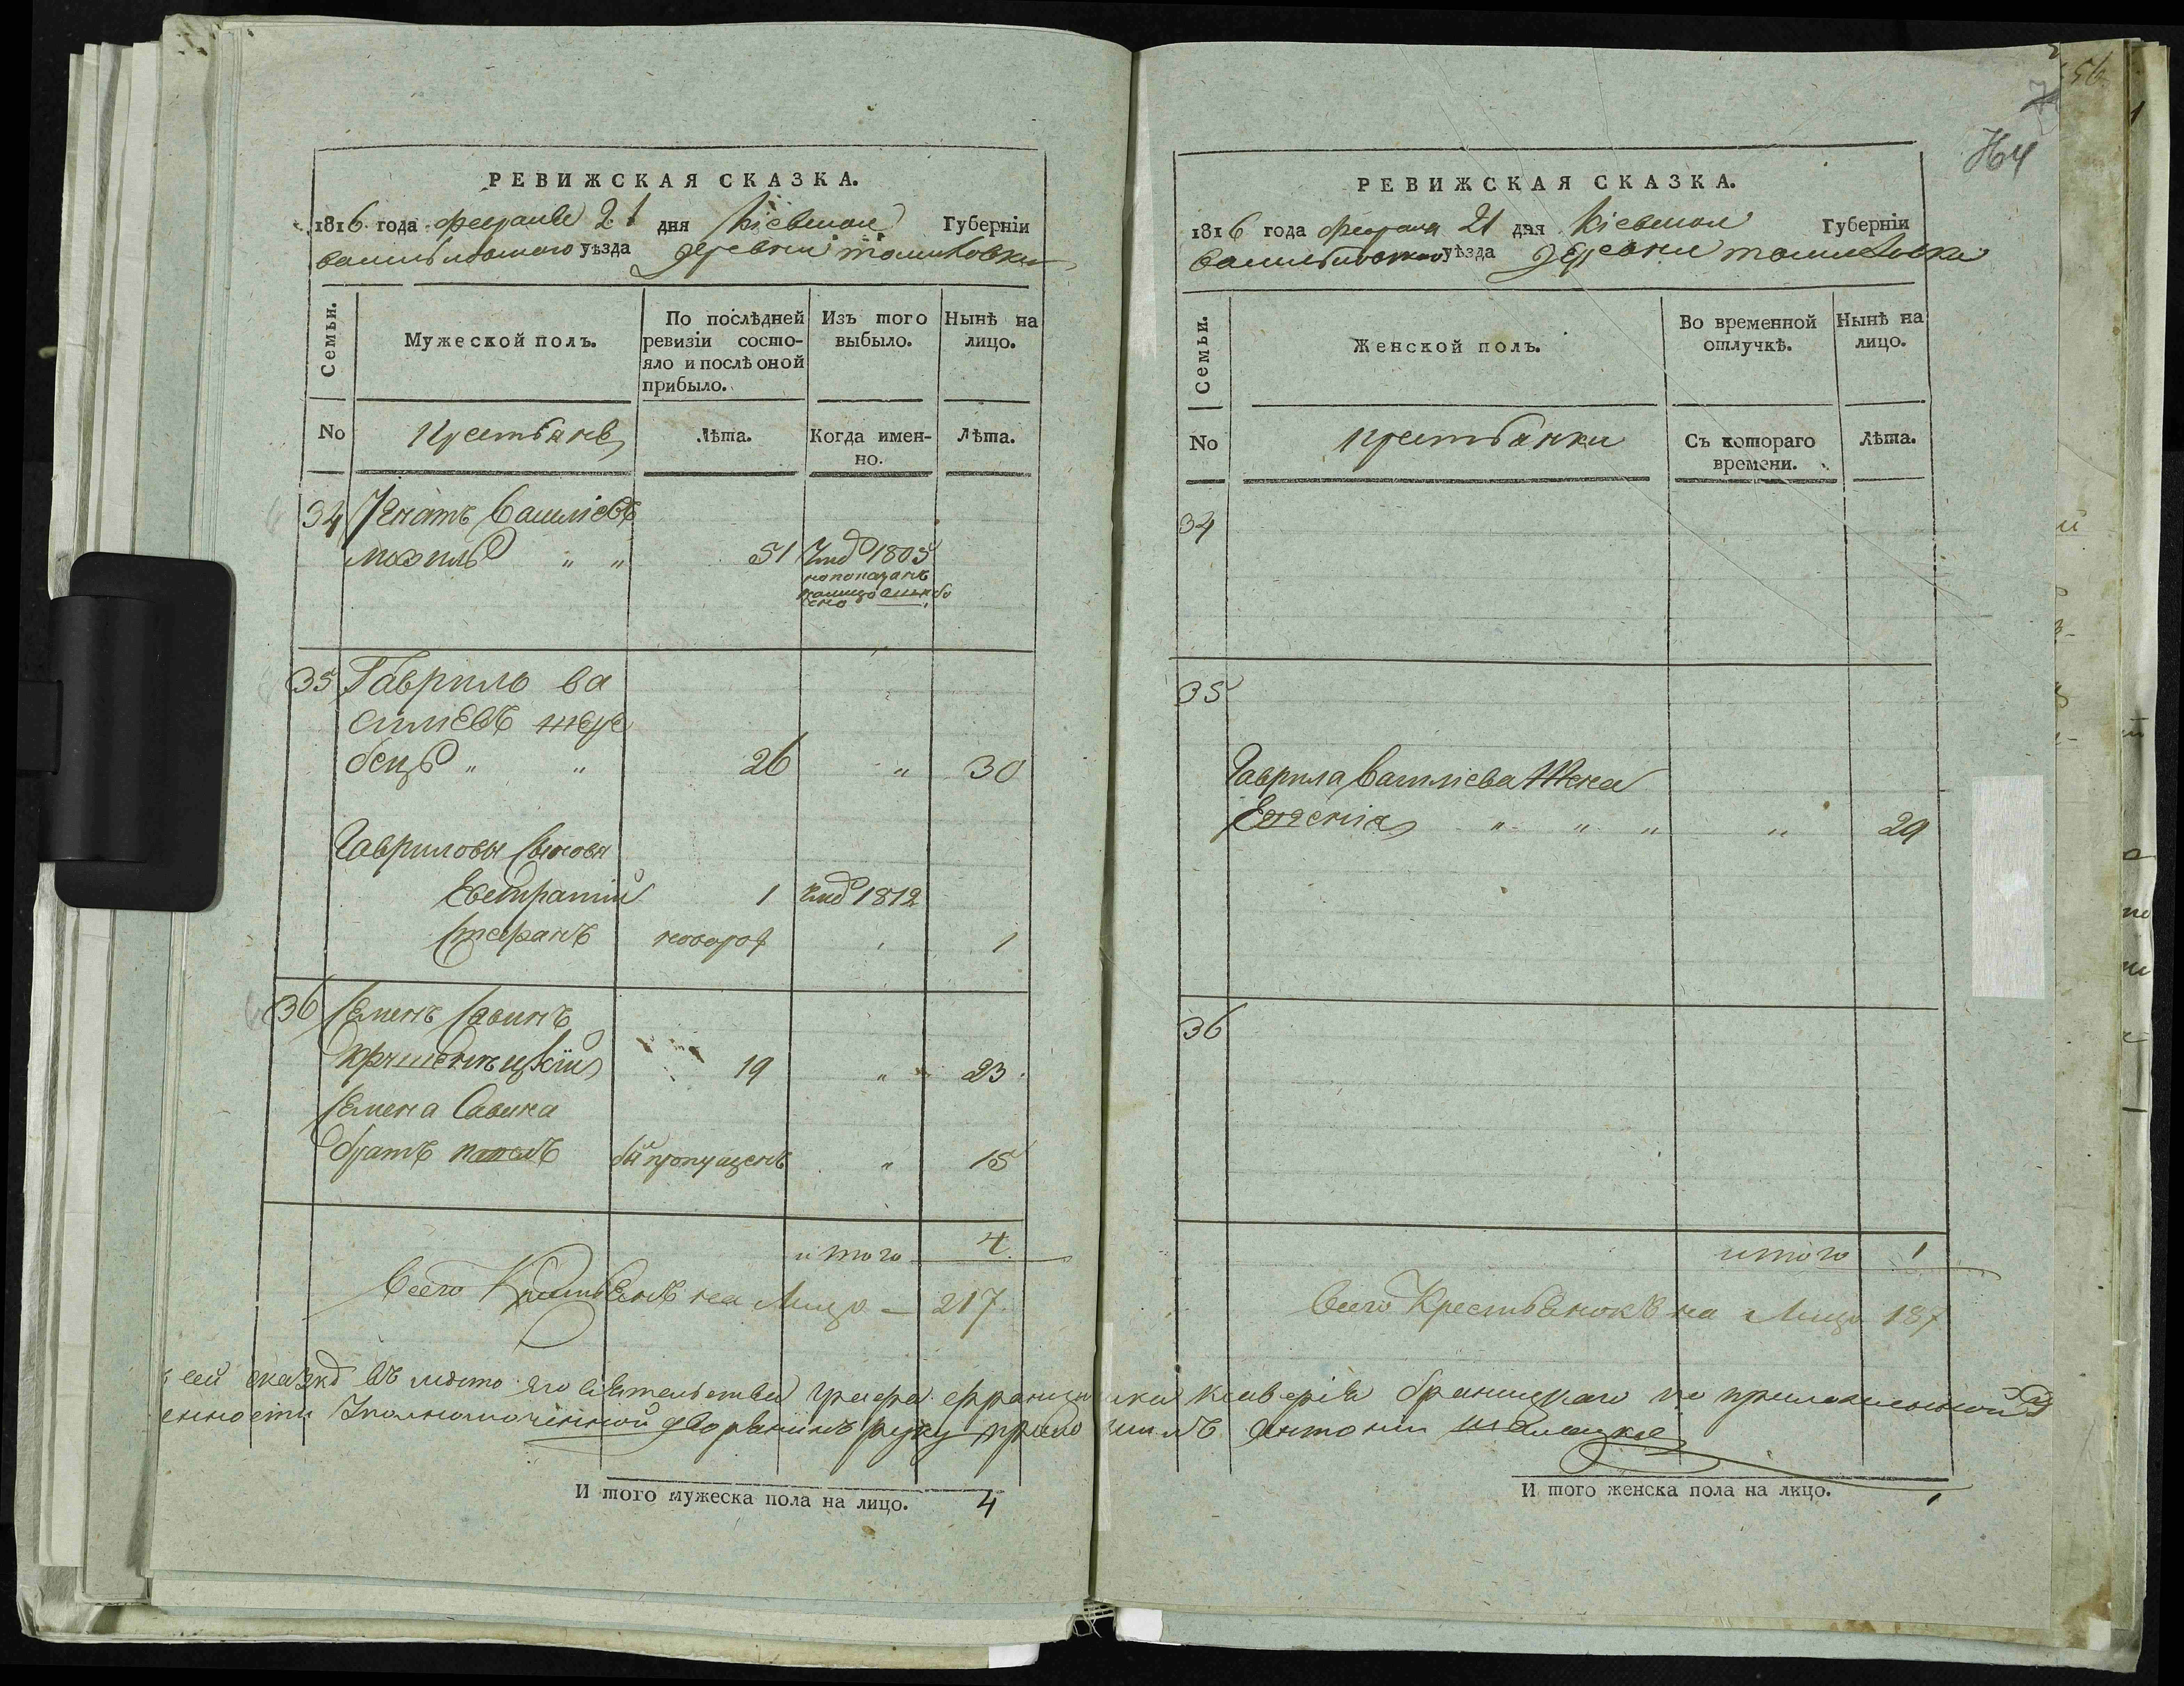 РЕВИЖСКАЯ СКАЗКА.
1816 года февраля 21 дня Кіевской Губерніи
васильковского уѣзда деревни томиловки
Семьи.
Мужеской полъ.
По послѣдней ревизіи состо-
яло и послѣ оной
прибыло.
Изъ того
выбыло.
Нынѣ на
лицо.
No
Крестьянѣ
Лѣта.
Когда имен-
но.
Лѣта.
34 Игнатъ Василіевъ
" " 51 1805
35 Гаврило ва
силіевъ жере
бецъ " " 26 " 30
Гавриловы сыновы
Евстратий 1 1812
Стефанъ новород 1
36 Семенъ Савинъ
19 " 23
Семена Савина
братъ бы пропущенъ " 15
итого 4
Всего Крестьянъ на Лицо — 217
И того мужеска пола на лицо. 4
РЕВИЖСКАЯ СКАЗКА.
1816 года февраля 21 дня Кіевской Губерніи
васильковского уѣзда деревни томиловки
Семьи.
Женской полъ.
Во временной
отлучкѣ.
Нынѣ на
лицо.
No
крестьянки
Съ котораго
времени.
Лѣта.
34
35
Гаврила Василіева Жена
" " " " 29
36
итого 1
Всего Крестьянокъ на Лицо 187
сей сказкѣ въ место его сіятельства графа францишка ксаверія браницкаго по
Уполномоченной дворянинъ руку приложилъ антони
И того женска пола на лицо. 1